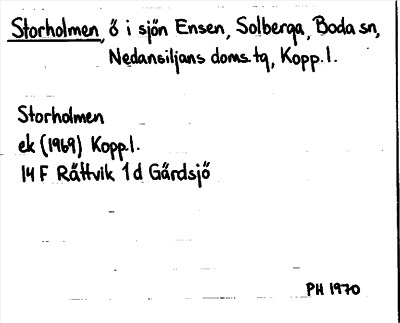 Storholmen, ö i sjön Ensen, Solberga, Boda sn,
Nedansiljans doms.tg, Kopp.l.
Storholmen
ek (1969) Kopp.l.
14 F Rättvik 1 d Gärdsjö
PH 1970